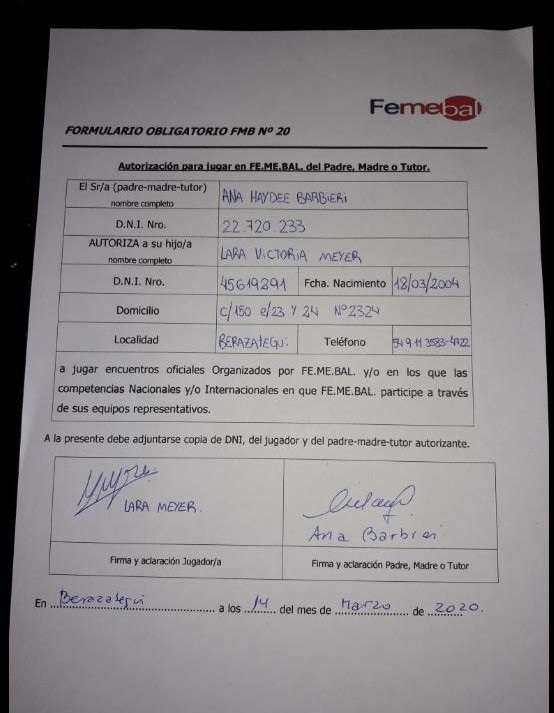 Femebal
FORMULARIO OBLIGATORIO FMB Nº 20
Autorización para jugar en FE.ME.BAL. del Padre, Madre o Tutor.
El Sr/a (padre-madre-tutor) nombre completo ANA HAYDEE BARBIERI
D.N.I. Nro. 22.720.233
AUTORIZA a su hijo/a nombre completo LARA VICTORIA MEYER
D.N.I. Nro. 45619291 Fcha. Nacimiento 18/03/2004
Domicilio C/150 e/23 Y 24 Nº2324
Localidad BERAZATEGUI. Teléfono 54 9 11 3583-4722
a jugar encuentros oficiales Organizados por FE.ME.BAL. y/o en los que las
competencias Nacionales y/o Internacionales en que FE.ME.BAL. participe a través
de sus equipos representativos.
A la presente debe adjuntarse copia de DNI, del jugador y del padre-madre-tutor autorizante.
LARA MEYER.
Ana Barbieri
Firma y aclaración Jugador/a Firma y aclaración Padre, Madre o Tutor
En Berazategui a los 14 del mes de Marzo de 2020.